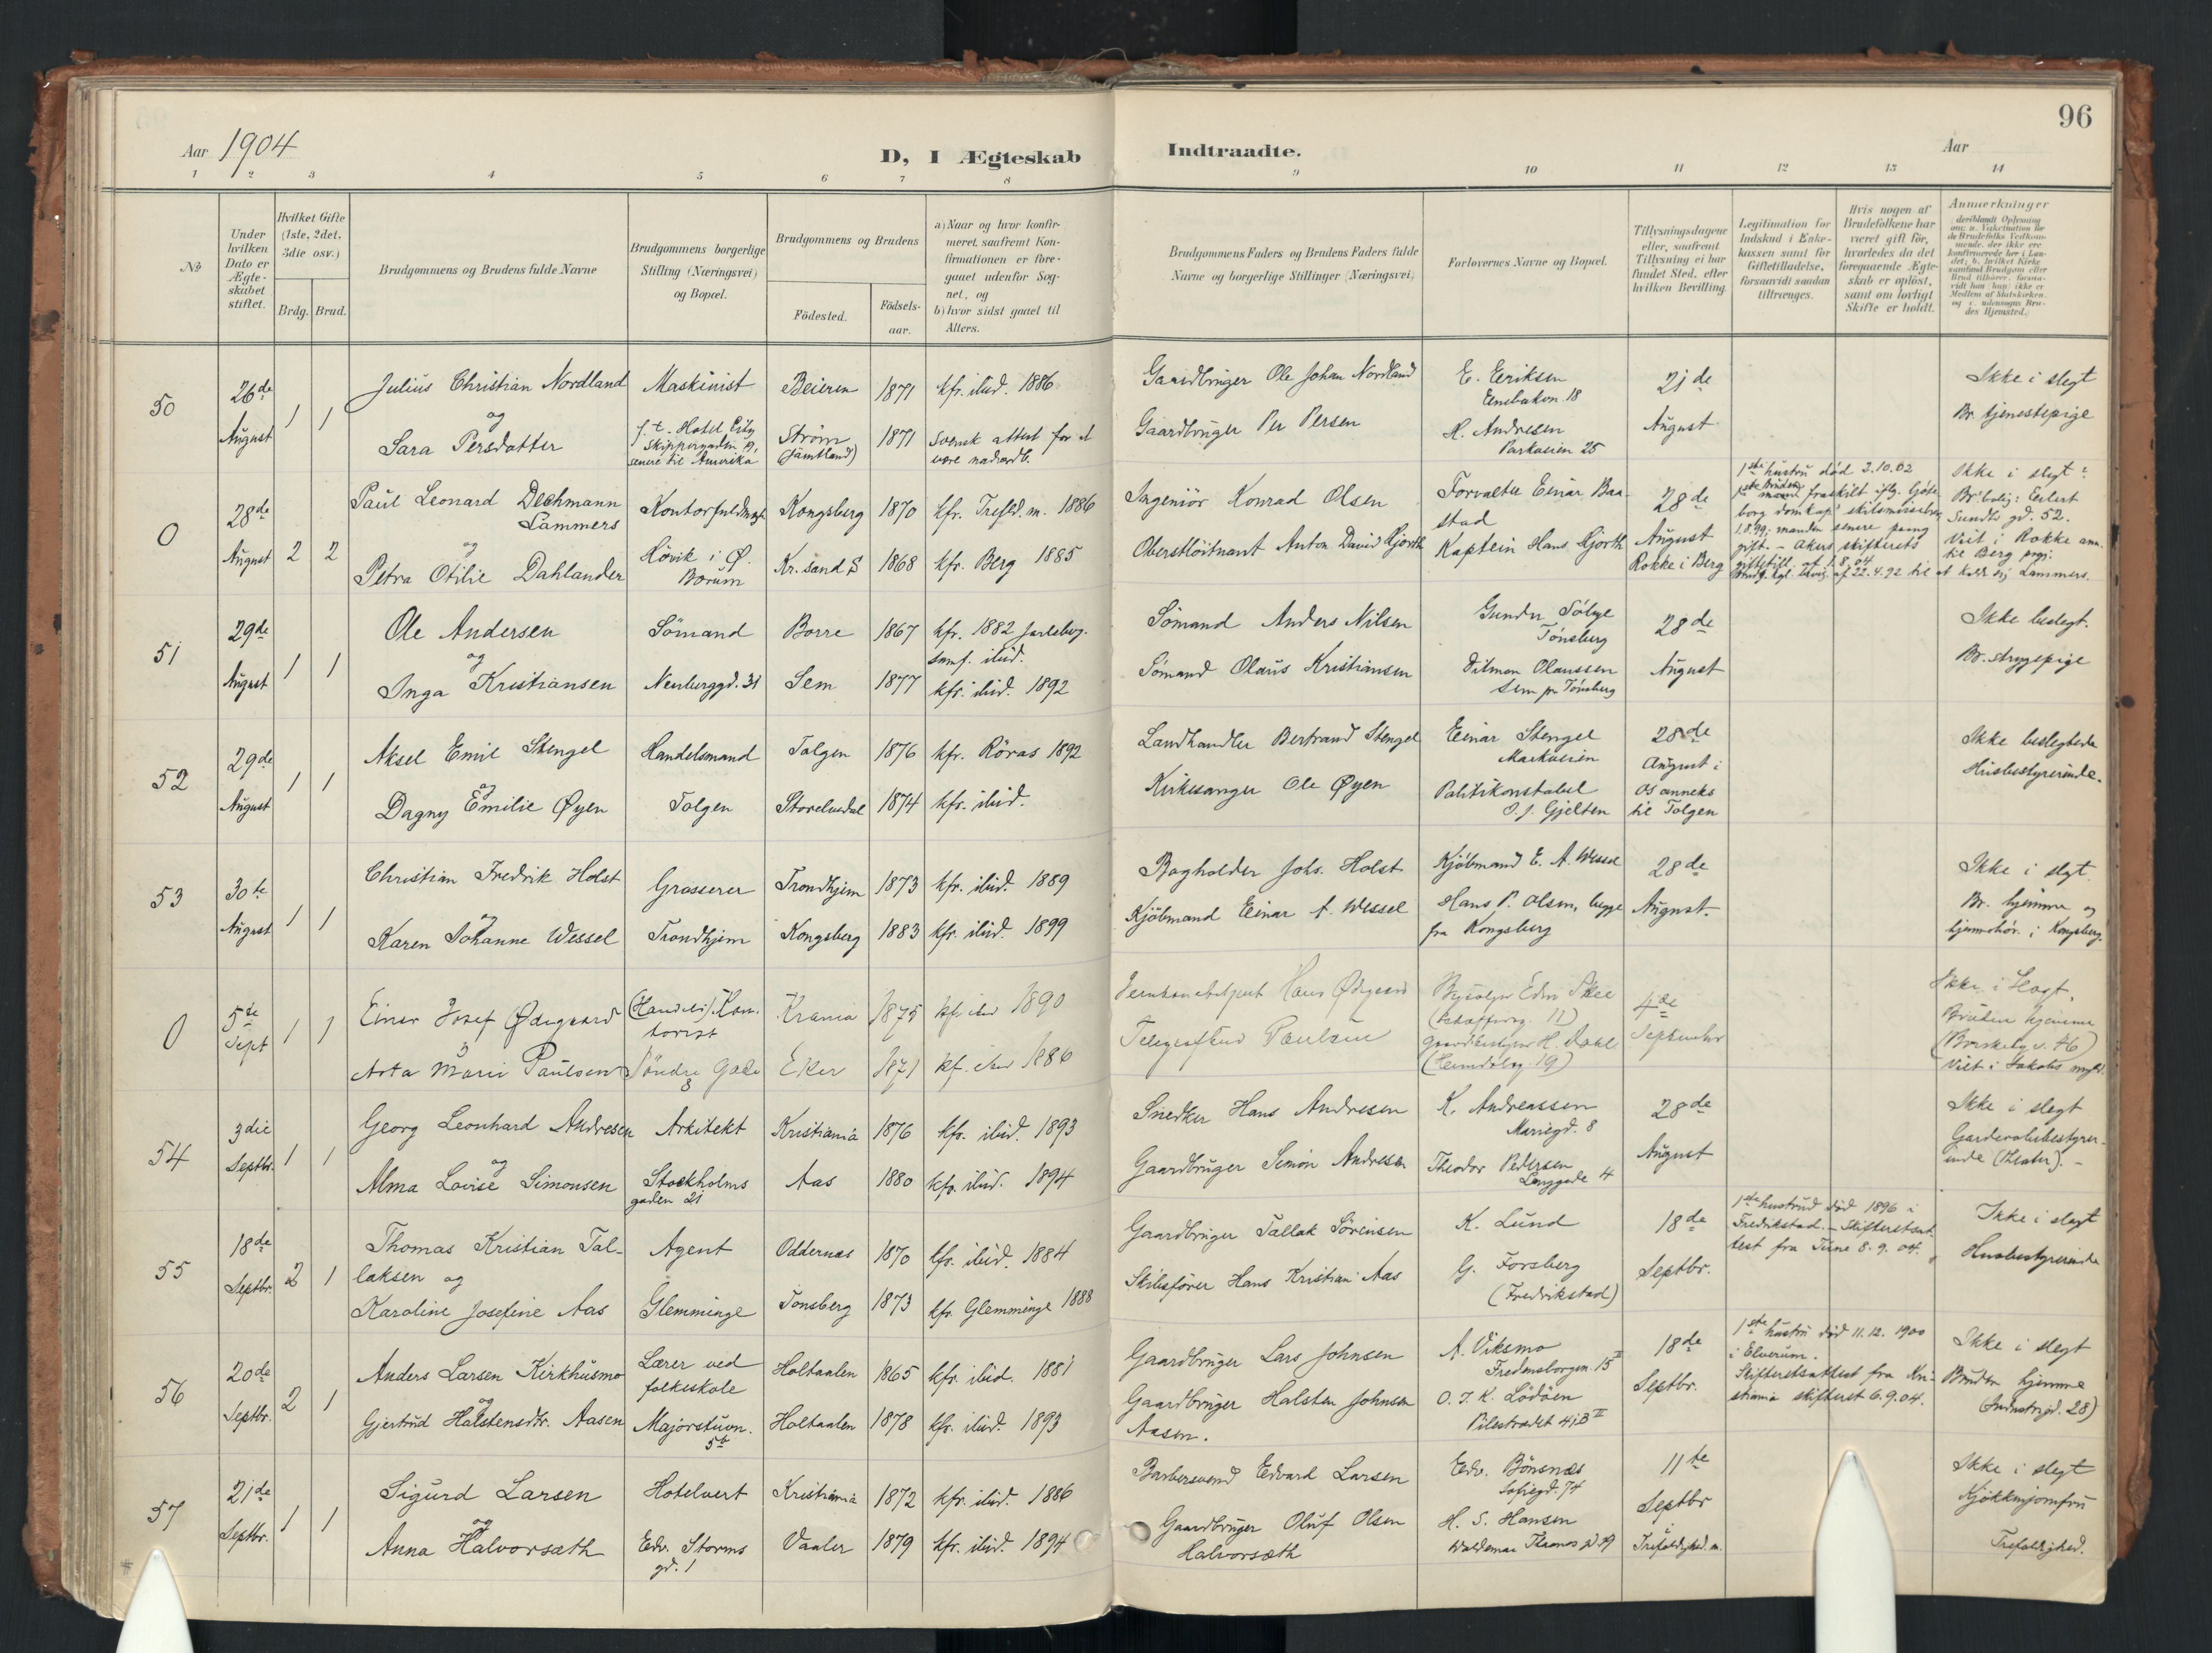 96
Aar 1904
D, I Ægteskab
Indtraadte.
Aar
1 2 3 4 5 6 7 8
9 10 11 12 13 14
No
Under hvilken Dato er Ægteskabet stiftet.
Hvilket Gifte (1ste, 2det, 3die osv.)
Brdg. Brud.
Brudgommens og Brudens fulde Navne
Brudgommens borgerlige Stilling (Næringsvei) og Bopæl.
Brudgommens og Brudens
Födested.
Födsels-aar.
a) Naar og hvor konfir-
meret, saafremt Kon-
firmationen er fore-
gaaet udenfor Sog-
net, og
b) hvor sidst gaaet til
Alters.
Brudgommens Faders og Brudens Faders fulde
Navne og borgerlige Stillinger (Næringsvei)
Forlovernes Navne og Bopæl.
Tillysningsdagene
eller, saafremt
Tillysning ei har
fundet Sted, efter
hvilken Bevilling.
Legitimation for
Indskud i Enke-
kassen samt for
Giftetilladelse,
forsaavidt saadan
tiltrænges.
Hvis nogen af
Brudefolkene har
været gift för,
hvorledes da det
foregaaende Ægte-
skab er oplöst,
samt om lovligt
Skifte er holdt.
Anmærkninger
50
26de August
1 1
Julius Christian Nordland
og
Sara Persdatter
Maskinist
p. t. Hotel City
Skippergaden
senere til Amerika
Beieren 1871 kfr. ibid. 1886
Ström (Jämtland) 1871 Svensk attest for at
være
Gaardbruger Ole Johan Nordland
Gaardbruger Per Persen
E. Eriksen
18
A. Andresen
Parkveien 25
21de
August
Ikke i slegt
Br. tjenestepige
0
28de August
2 2
Paul Leonard Dechmann
Lammers
og
Petra Otilie Dahlander
Kontorfuldmægt.
Hövik i Ø.
Bærum
Kongsberg 1870 kfr. Trefold. m. 1886
Kr.sand S 1868 kfr. Berg 1885
Ingeniör Konrad Olsen
Oberstlöitnant Anton David Hjorth
Forvalter Einar Baa-
stad
Kaptein Hans Hjorth
28de
August
Rokke i Berg
1ste hustru död 2.10.02
fraskilt iflg. Göte-
borg domkap. skilsmissebrev
1.8.99; manden senere gang
gift. - Akers skifterets
giftetill. af 1.8.04
af 22.4.92 til at kalde sig Lammers.
Ikke i slegt:
Br. bolig: Eilert
Sundts gd. 52.
Viet i Rokke ann.
til Berg prgj.
51
29de August
1 1
Ole Andersen
og
Inga Kristiansen
Sömand
Neubergd. 31
Borre 1867 kfr. 1882 Jarlsberg.
samf. ibid.
Sem 1877 kfr. ibid. 1892
Sömand Anders Nilsen
Sömand Olaus Kristiansen
Gunder Sölye
Tönsberg
Dilman Olaussen
Sem pr. Tönsberg
28de
August
Ikke beslegt.
Br. strygepige
52
29de August
1 1
Aksel Emil Stengel
og
Dagny Emilie Øyen
Handelsmand
Tolgen
Tolgen 1876 kfr. Röros 1892
Storelvedal 1874 kfr. ibid.
Landhandler Bertrand Stengel
Kirkesanger Ole Øyen
Einar Stengel
Markveien
Politikonstabel
O. J. Gjelten
28de
August i
Os anneks
til Tolgen
Ikke beslegtede
Husbestyrerinde.
53
30te August
1 1
Christian Fredrik Holst
og
Karen Johanne Wessel
Grosserer
Trondhjem
Trondhjem 1873 kfr. ibid. 1889
Kongsberg 1883 kfr. ibid. 1899
Bogholder Johs. Holst
Kjöbmand Einar A. Wessel
Kjöbmand E. A. Wessel
Hans P. Olsen, begge
fra Kongsberg
28de
August.
Ikke i slegt.
Br. hjemme og
hjemmehör. i Kongsberg.
0
5te Sept
1 1
Einar Josef Ødegaard
Asta Marie Paulsen
(Handels) Kon-
torist
Söndre Gade
8
Krania 1875 kfr. ibid 1890
Eker 1871 kf. ibid 1886
Hans Ødegaard
Paulsen
(Heimdalsg. 19)
4de
September
Ikke i slegt.
Bruden hjemme
Viet i Jakobs
54
3die Septbr.
1 1
Georg Leonhard Andresen
og
Alma Lovise Simonsen
Arkitekt
Stockholms
gaden 21
Kristiania 1876 kfr. ibid. 1893
Aas 1880 kfr. ibid. 1894
Snedker Hans Andresen
Gaardbruger Simon Andresen
K. Andreassen
Mariegd. 8
Theodor Pedersen
Langgade 4
28de
August
Ikke i slegt
Garderobebestyrer-
inde (theater). -
55
18de Septbr.
2 1
Thomas Kristian Tal-
laksen og
Karoline Josefine Aas
Agent
Glemminge
Oddernæs 1870 kfr. ibid. 1884
Tonsberg 1873 kfr. Glemminge 1888
Gaardbruger Tallak Sörensen
Skibsförer Hans Kristian Aas
K. Lund
G. Forsberg
(Fredrikstad)
18de
Septbr.
1ste hustru död 1896 i
Fredrikstad. - Skifteretsat-
test fra Tune 8.9.04.
Ikke i slegt
Husbestyrerinde
56
20de Septbr.
2 1
Anders Larsen Kirkhusmo
og
Gjertrud Halstensdtr. Aasen
Lærer ved
folkeskole
Majorstuvn.
5b
Holtaalen 1865 kfr. ibid. 1881
Holtaalen 1878 kfr. ibid. 1893
Gaardbruger Lars Johnsen
Gaardbruger Halsten Johnsen
Aasen.
A. Viksmo
Fredensborgvn. 15 II
O. J. K. Lödöen
Pilestrædet
18de
Septbr.
1ste hustru död 11.12.1900
i Elverum.
Skifteretsattest fra Kri-
stiania skifteret 6.9.04.
Ikke i slegt
Bruden hjemme
(Industrigd. 28)
57
21de Septbr.
1 1
Sigurd Larsen
og
Anna Halvorsæth
Hotelvert
Edv. Storms
gd. 1
Kristiania 1872 kfr. ibid. 1886
Vaaler 1879 kfr. ibid. 1894
Barbersvend Edvard Larsen
Gaardbruger Oluf Olsen
Halvorsæth
Edv. Bönsnæs
Sofiegd. 74
H. S. Hansen
Waldemar Thranes gd. 19
11te
Septbr
Trefoldighed. m.
Ikke i slegt
Kjökkenjomfru
Trefoldighed.